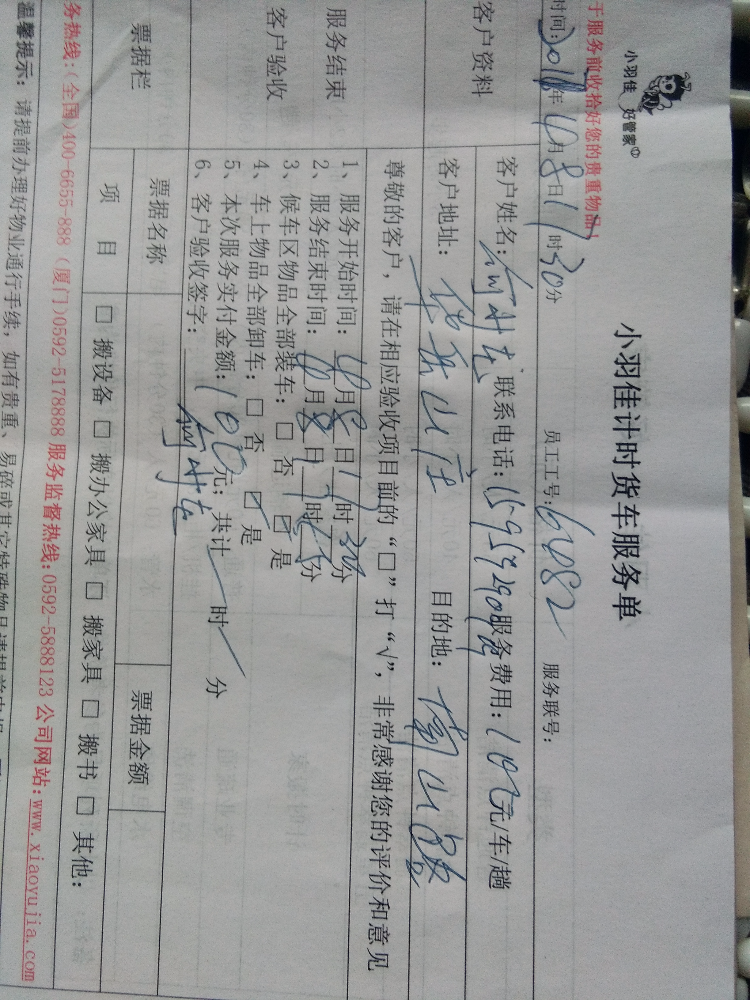 小羽佳 好管家
小羽佳计时货车服务单
于服务前收拾好您的贵重物品！
员工工号：6482 服务联号：
时间：年 月8日17时30分
客户资料
客户姓名： 联系电话： 服务费用：100元/车/趟
客户地址：山庄 目的地：南山路
尊敬的客户，请在相应验收项目前的“□”打“√”，非常感谢您的评价和意见
服务结束
客户验收
1、服务开始时间：月8日17时30分
2、服务结束时间：月8日 时 分
3、候车区物品全部装车：□ 否 ☑ 是
4、车上物品全部卸车：□ 否 ☑ 是
5、本次服务实付金额：100元；共计 时 分
6、客户验收签字：
票据栏
票据名称 票据金额
项 目 □ 搬设备 □ 搬办公家具 □ 搬家具 □ 搬书 □ 其他：
务热线：（全国）400-6655-888（厦门）0592-5178888 服务监督热线：0592-5888123 公司网站：www.xiaoyujia.com
温馨提示：请提前办理好物业通行手续，如有贵重、易碎或其它特殊物品请提前申报